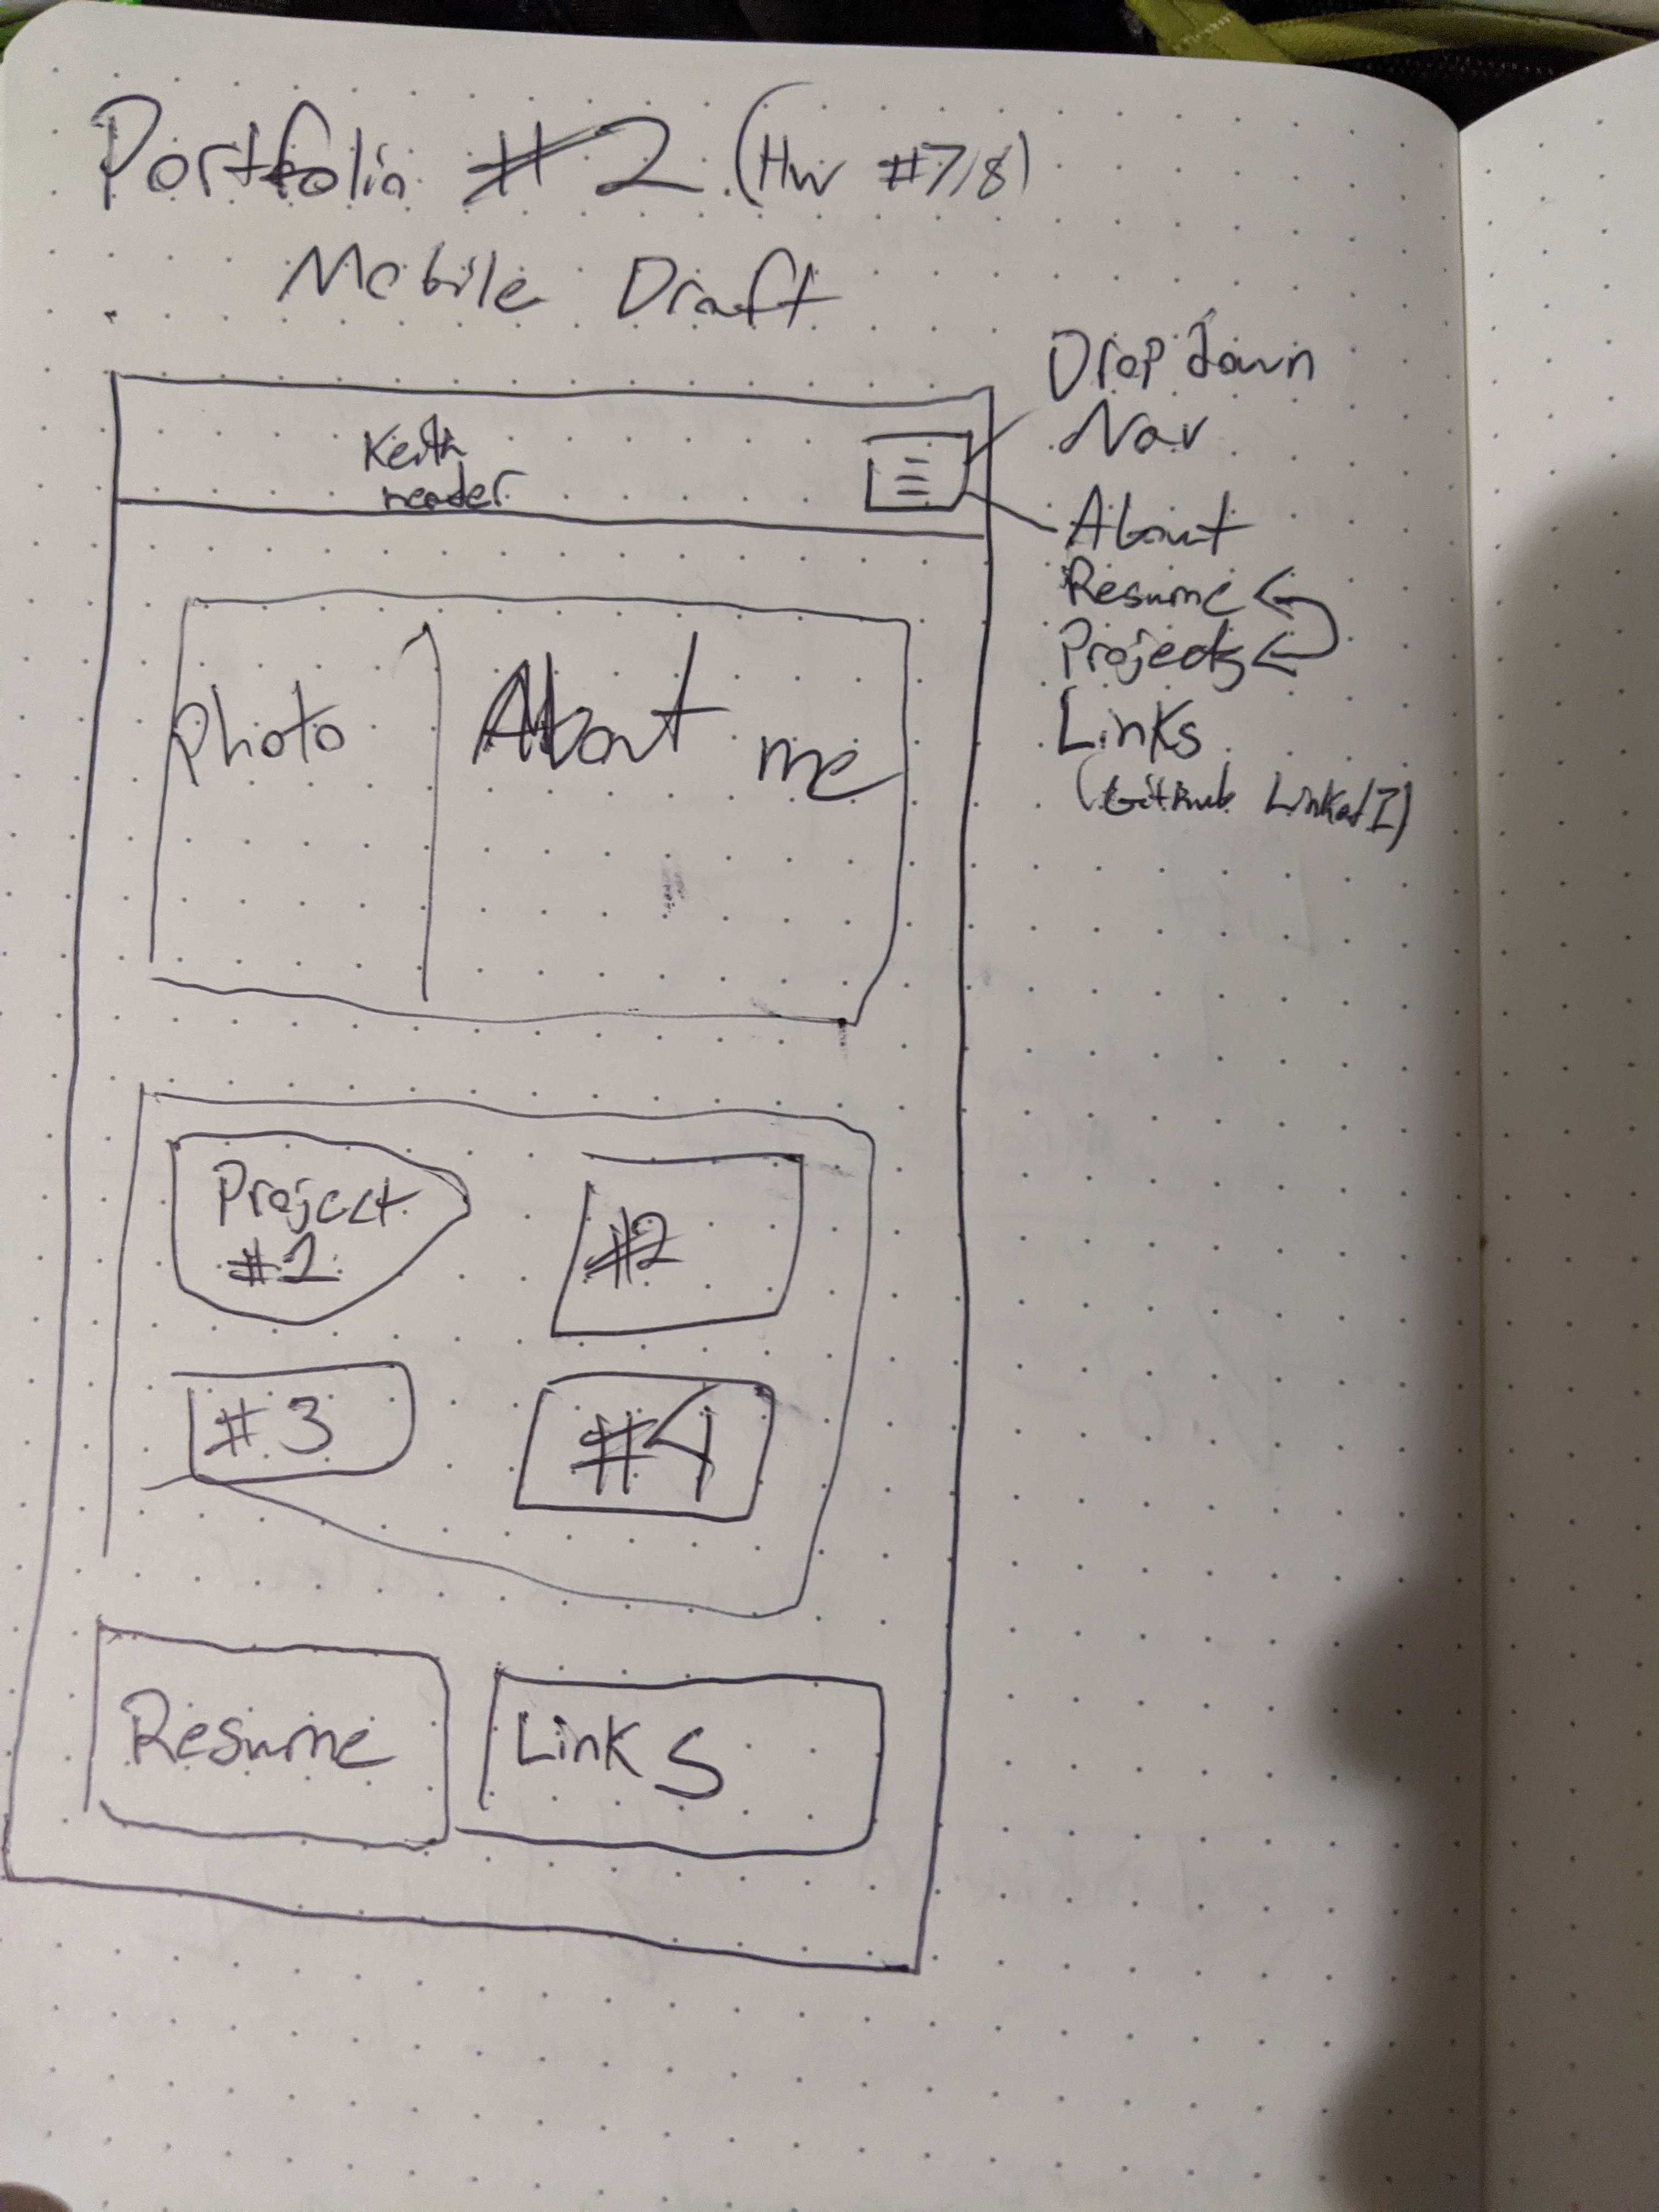 Portfolio #2 (HW #7/8)
Mobile Draft
Drop down
Nav
Keith
header
About
Resume
Projects
Links
(GitHub LinkedI)
Photo
About me
Project
#2
#2
#3
#4
Resume
Links